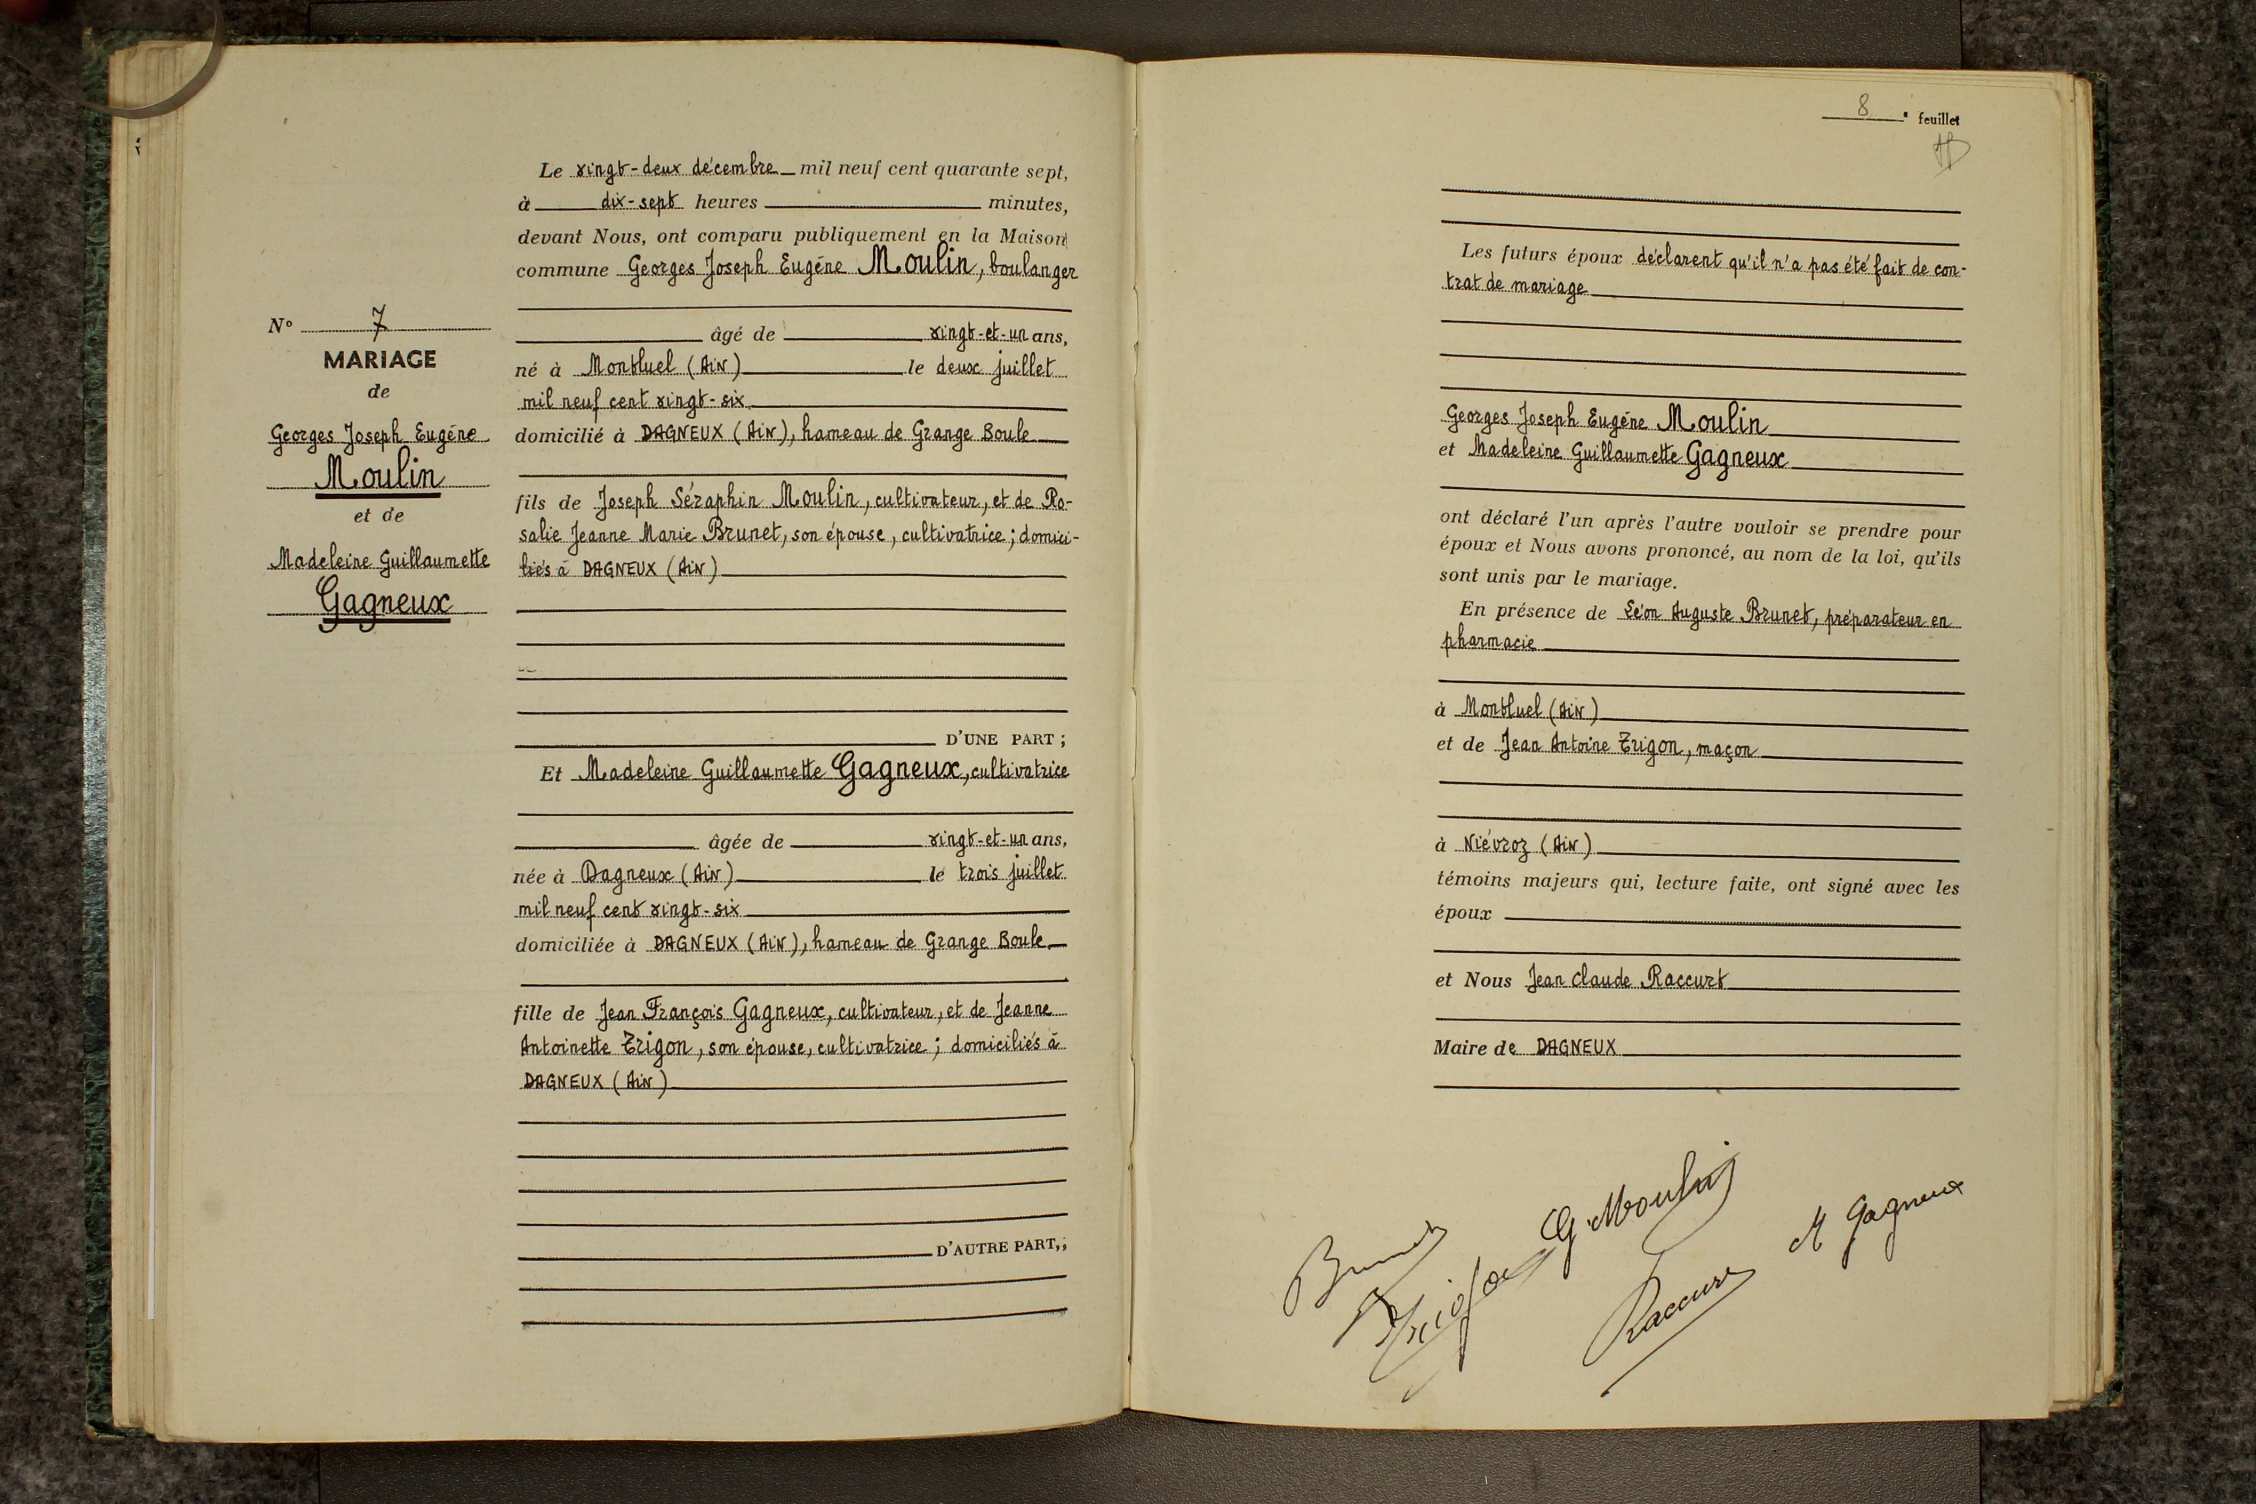 Le vingt-deux décembre mil neuf cent quarante sept,
à dix-sept heures minutes,
devant Nous, ont comparu publiquement en la Maison
commune Georges Joseph Eugène Moulin, boulanger
âgé de vingt-et-un ans,
né à Montluel (Ain) le deux juillet
mil neuf cent vingt-six
domicilié à DAGNEUX (Ain), hameau de Grange Boule
fils de Joseph Séraphin Moulin, cultivateur, et de Ro-
salie Jeanne Marie Brunet, son épouse, cultivatrice; domici-
liés à DAGNEUX (Ain)
D'UNE PART;
Et Madeleine Guillaumette Gagneux, cultivatrice
âgée de vingt-et-un ans,
née à Dagneux (Ain) le trois juillet
mil neuf cent vingt-six
domiciliée à DAGNEUX (Ain), hameau de Grange Boule
fille de Jean François Gagneux, cultivateur, et de Jeanne
Antoinette Trigon, son épouse, cultivatrice; domiciliés à
DAGNEUX (Ain)
D'AUTRE PART,;
N° 7
MARIAGE
de
Georges Joseph Eugène
Moulin
et de
Madeleine Guillaumette
Gagneux
8 e feuillet
Les futurs époux déclarent qu'il n'a pas été fait de con-
trat de mariage
Georges Joseph Eugène Moulin
et Madeleine Guillaumette Gagneux
ont déclaré l'un après l'autre vouloir se prendre pour
époux et Nous avons prononcé, au nom de la loi, qu'ils
sont unis par le mariage.
En présence de Léon Auguste Brunet, préparateur en
pharmacie
à Montluel (Ain)
et de Jean Antoine Trigon, maçon
à Niévroz (Ain)
témoins majeurs qui, lecture faite, ont signé avec les
époux
et Nous Jean Claude Raccurt
Maire de DAGNEUX
Brunet
Trigon
G. Moulin
Raccurt
M Gagneux